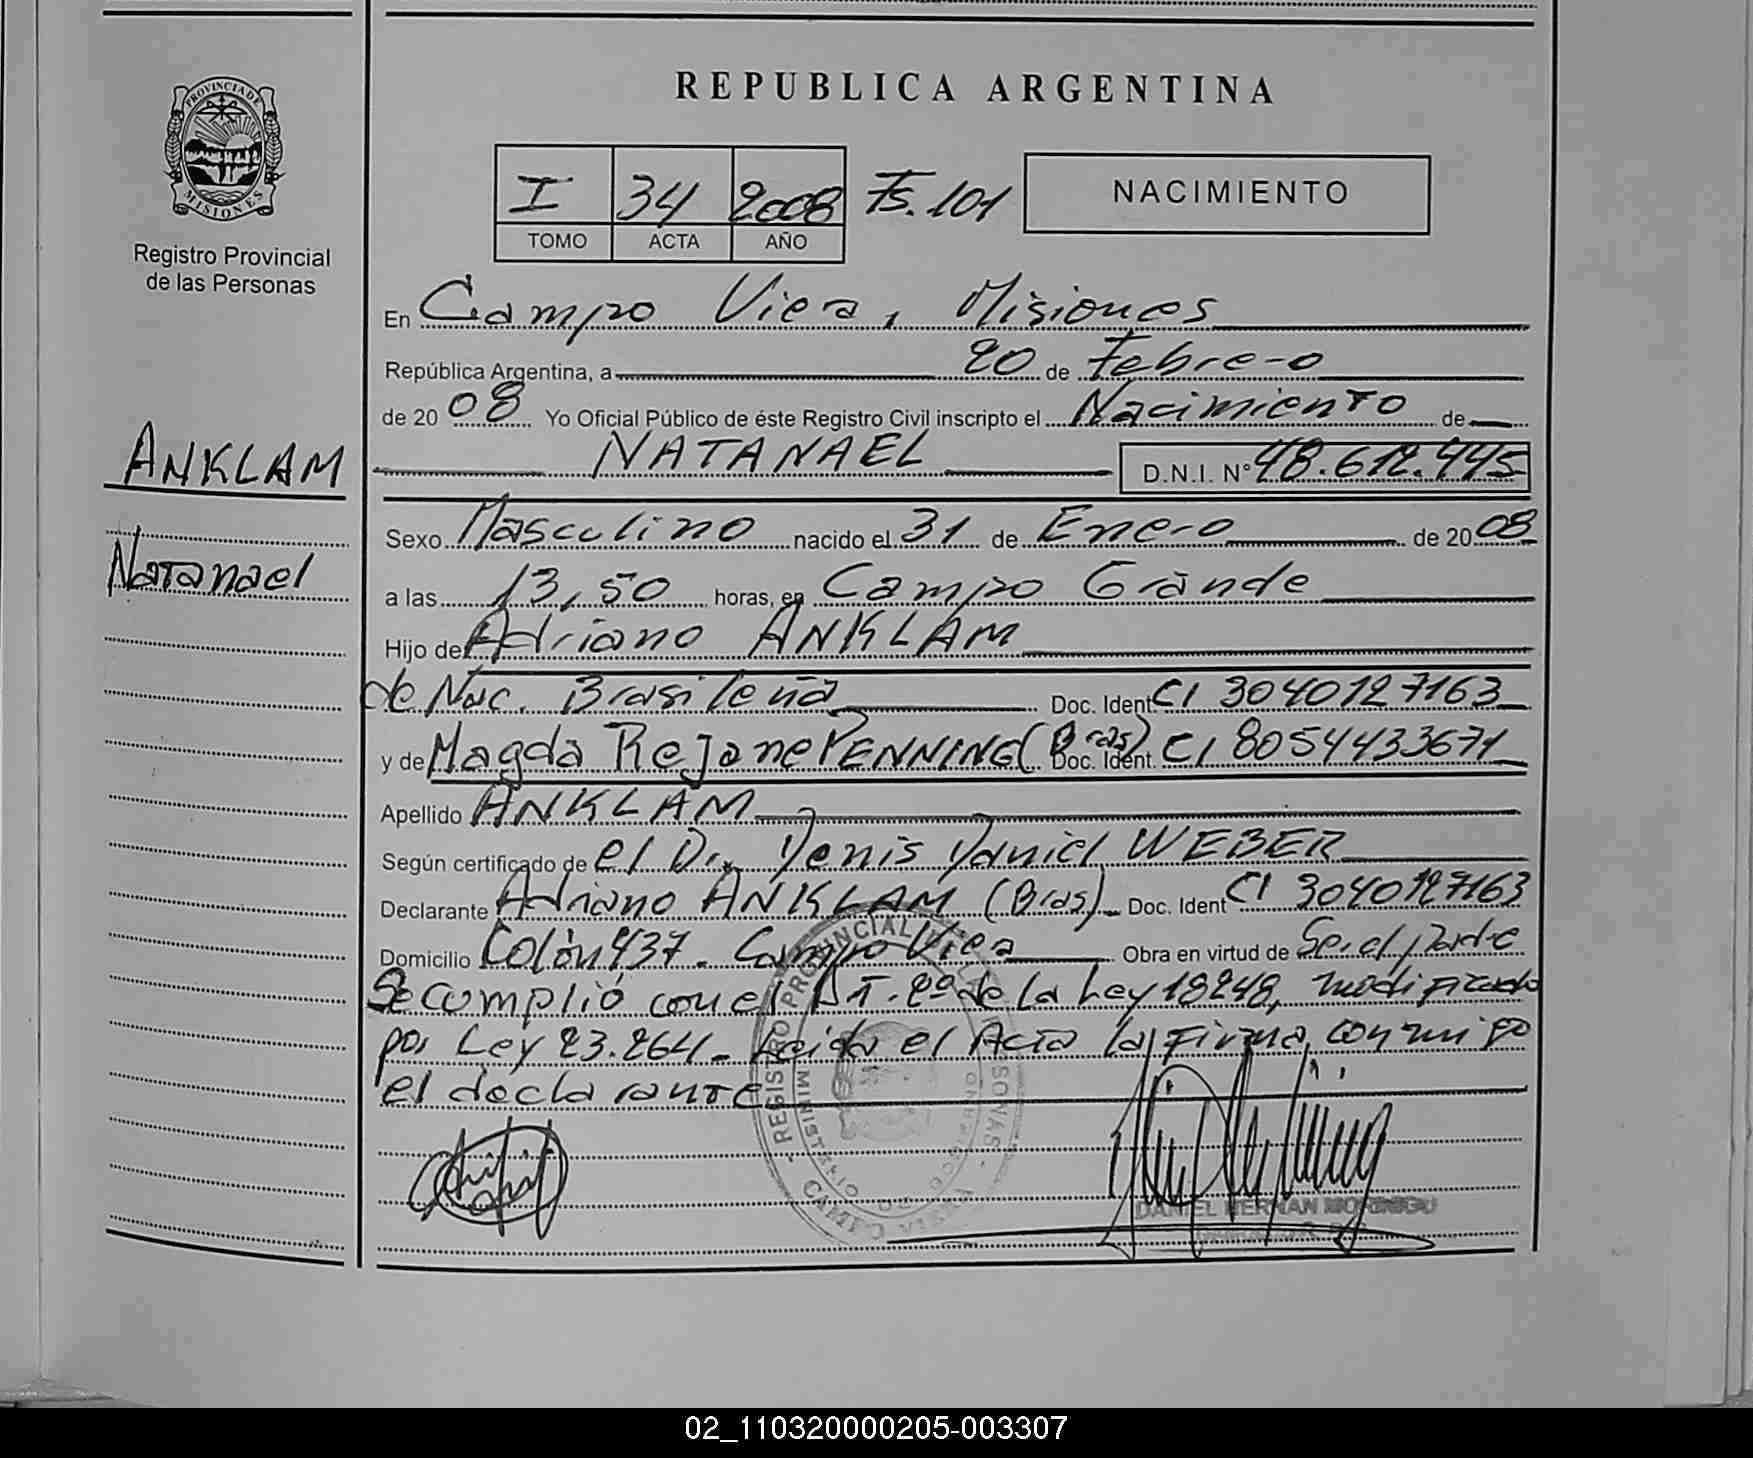 REPUBLICA ARGENTINA
PROVINCIA DE
MISIONES
Registro Provincial
de las Personas
I 34 2008 Fs. 101
TOMO ACTA AÑO
NACIMIENTO
En Campo Viera, Misiones
República Argentina, a 20 de Febrero
de 2008 Yo Oficial Público de éste Registro Civil inscripto el Nacimiento de
ANKLAM
NATANAEL D.N.I. Nº 48.612.445
Sexo Masculino nacido el 31 de Enero de 2008
Natanael
a las 13,50 horas, en Campo Grande
Hijo de Adriano ANKLAM
de Nac. Brasileña Doc. Ident. CI 3040127163
y de Magda Rejane PENNING (Bras) Doc. Ident. CI 8054433671
Apellido ANKLAM
Según certificado de el Dr. Denis Daniel WEBER
Declarante Adriano ANKLAM (Bras) Doc. Ident CI 3040127163
Domicilio Colón 437 - Campo Viera Obra en virtud de Ser el padre
Se cumplió con el ART. 2º de la Ley 18248, modificado
por Ley 23.264 - Leida el Acta la firma conmigo
el declarante
REGISTRO PROVINCIAL DE LAS PERSONAS
MINISTERIO DE GOBIERNO
CAMPO VIERA
DANIEL HERNAN MORINIGO
02_110320000205-003307